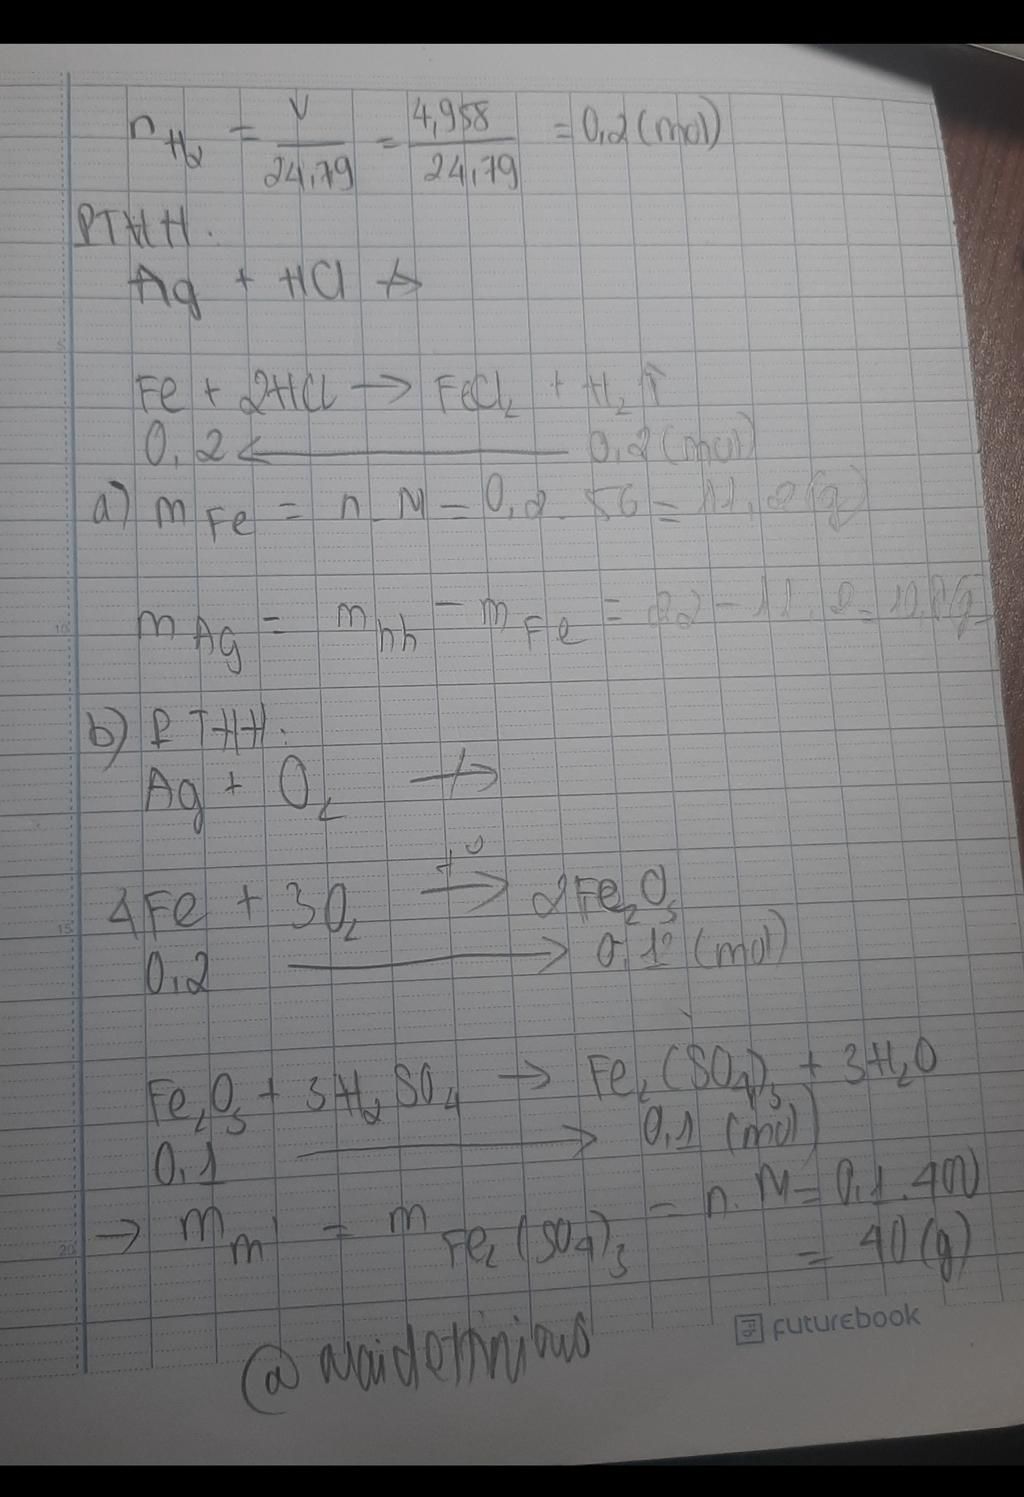 n H2 = V/24,79 = 4,958/24,79 = 0,2 (mol)
PTHH:
Ag + HCl ↛
Fe + 2HCl → FeCl2 + H2↑
0,2 ← 0,2 (mol)
a) m Fe = n.M = 0,2.56 = 11,2 (g)
m Ag = m hh - m Fe = 22 - 11,2 = 10,8 (g)
b) PTHH:
Ag + O2 ↛
4Fe + 3O2 t° → 2Fe2O3
0,2 → 0,1 (mol)
Fe2O3 + 3H2SO4 → Fe2(SO4)3 + 3H2O
0,1 → 0,1 (mol)
→ m m' = m Fe2(SO4)3 = n.M = 0,1.400
= 40 (g)
futurebook